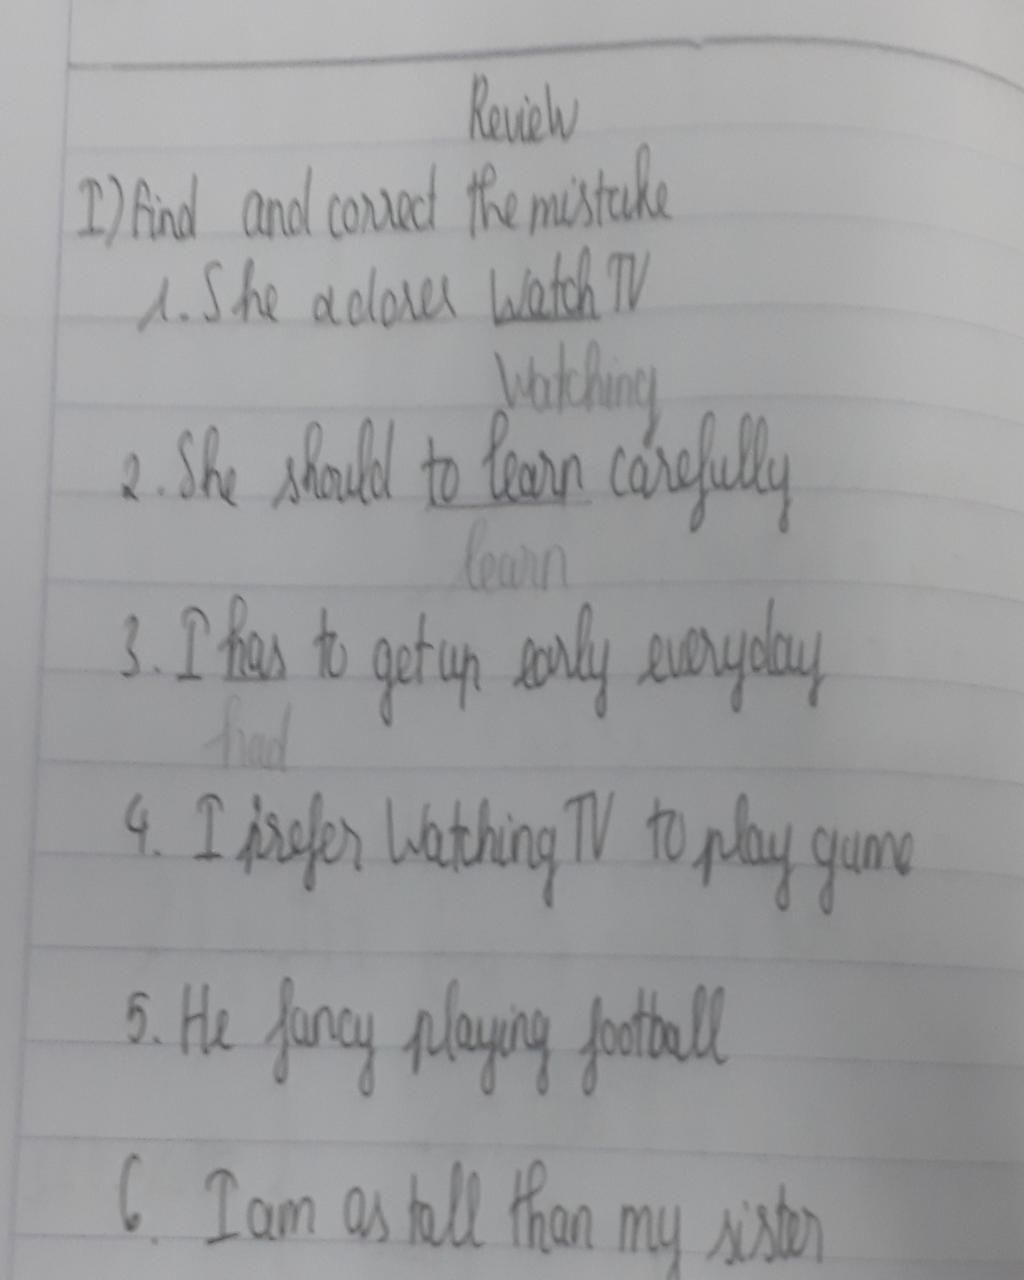 Review
I) find and correct the mistake
1. She adores Watch TV
Watching
2. She should to learn carefully
learn
3. I has to get up early everyday
had
4. I prefer Watching TV to play game
5. He fancy playing football
6. I am as tall than my sister